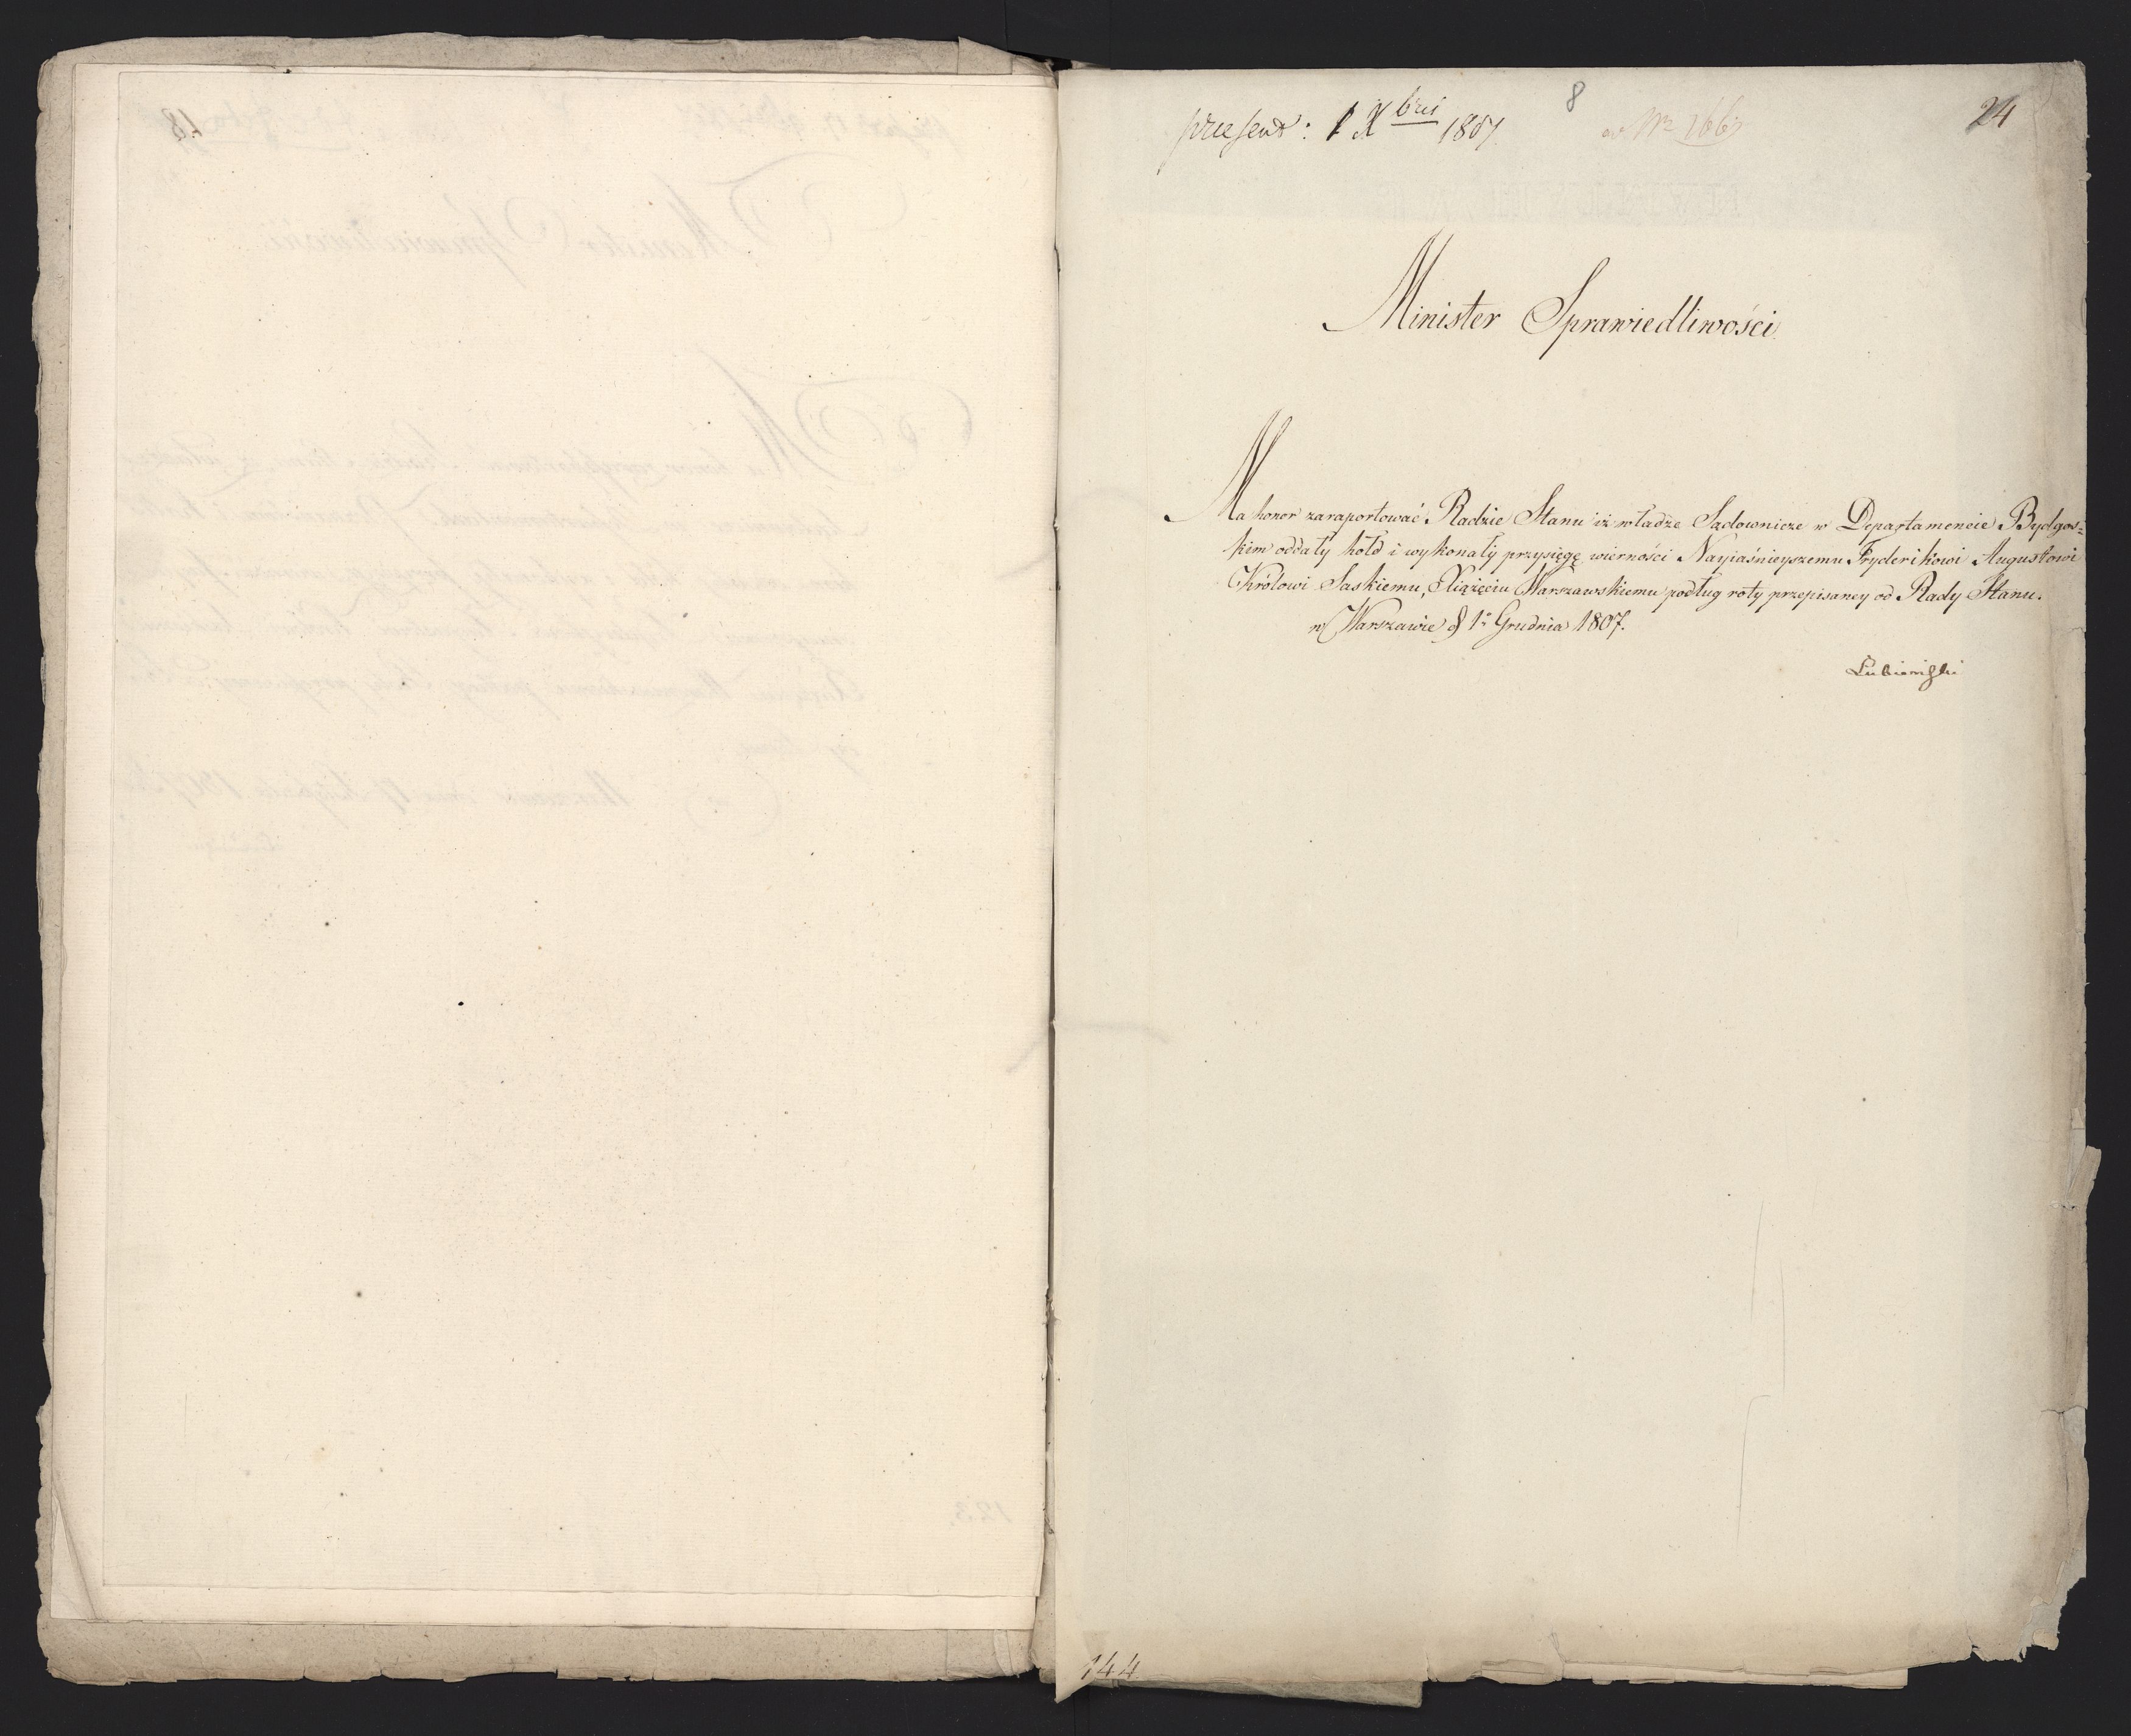 praesent: 1 Xbris 1807. 8 ad Nr 166 24
Minister Sprawiedliwości.
Ma honor zaraportować Radzie Stanu iż władze Sądownicze w Departamencie Bydgos=
kim oddały hołd i wykonały przysięgę wierności Nayiaśnieyszemu Fryderikowi Augustowi
Królowi Saskiemu, Xiążęciu Warszawskiemu podług roty przepisaney od Rady Stanu.
w Warszawie d 1o Grudnia 1807.
Łubieński
144